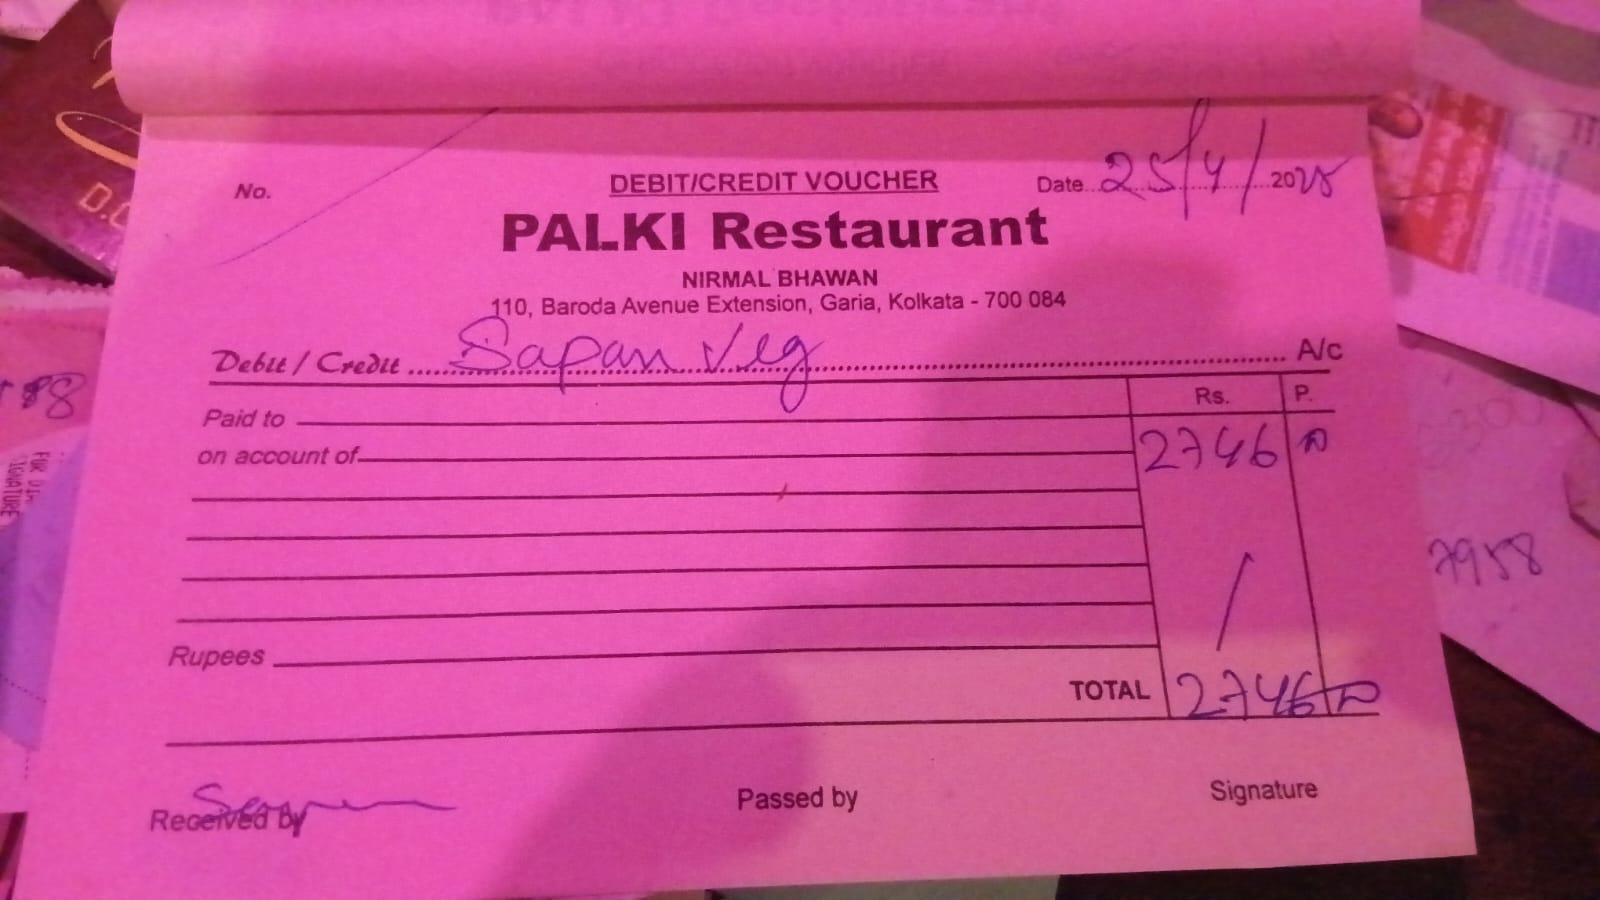 No.
DEBIT/CREDIT VOUCHER
Date 25/4/2025
PALKI Restaurant
NIRMAL BHAWAN
110, Baroda Avenue Extension, Garia, Kolkata - 700 084
Debit / Credit Sapan Veg A/c
Rs. P.
Paid to
on account of 2746
Rupees
TOTAL 2746
Received by Passed by Signature
7958
FOR
SIGNATURE